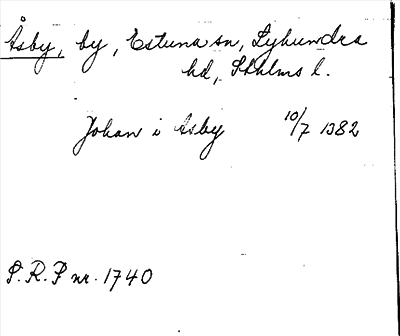 Åsby, by, Estuna sn, Lyhundra
hd, Sthlms l.
Johan i Asby 10/7 1382
S.R.P nr. 1740